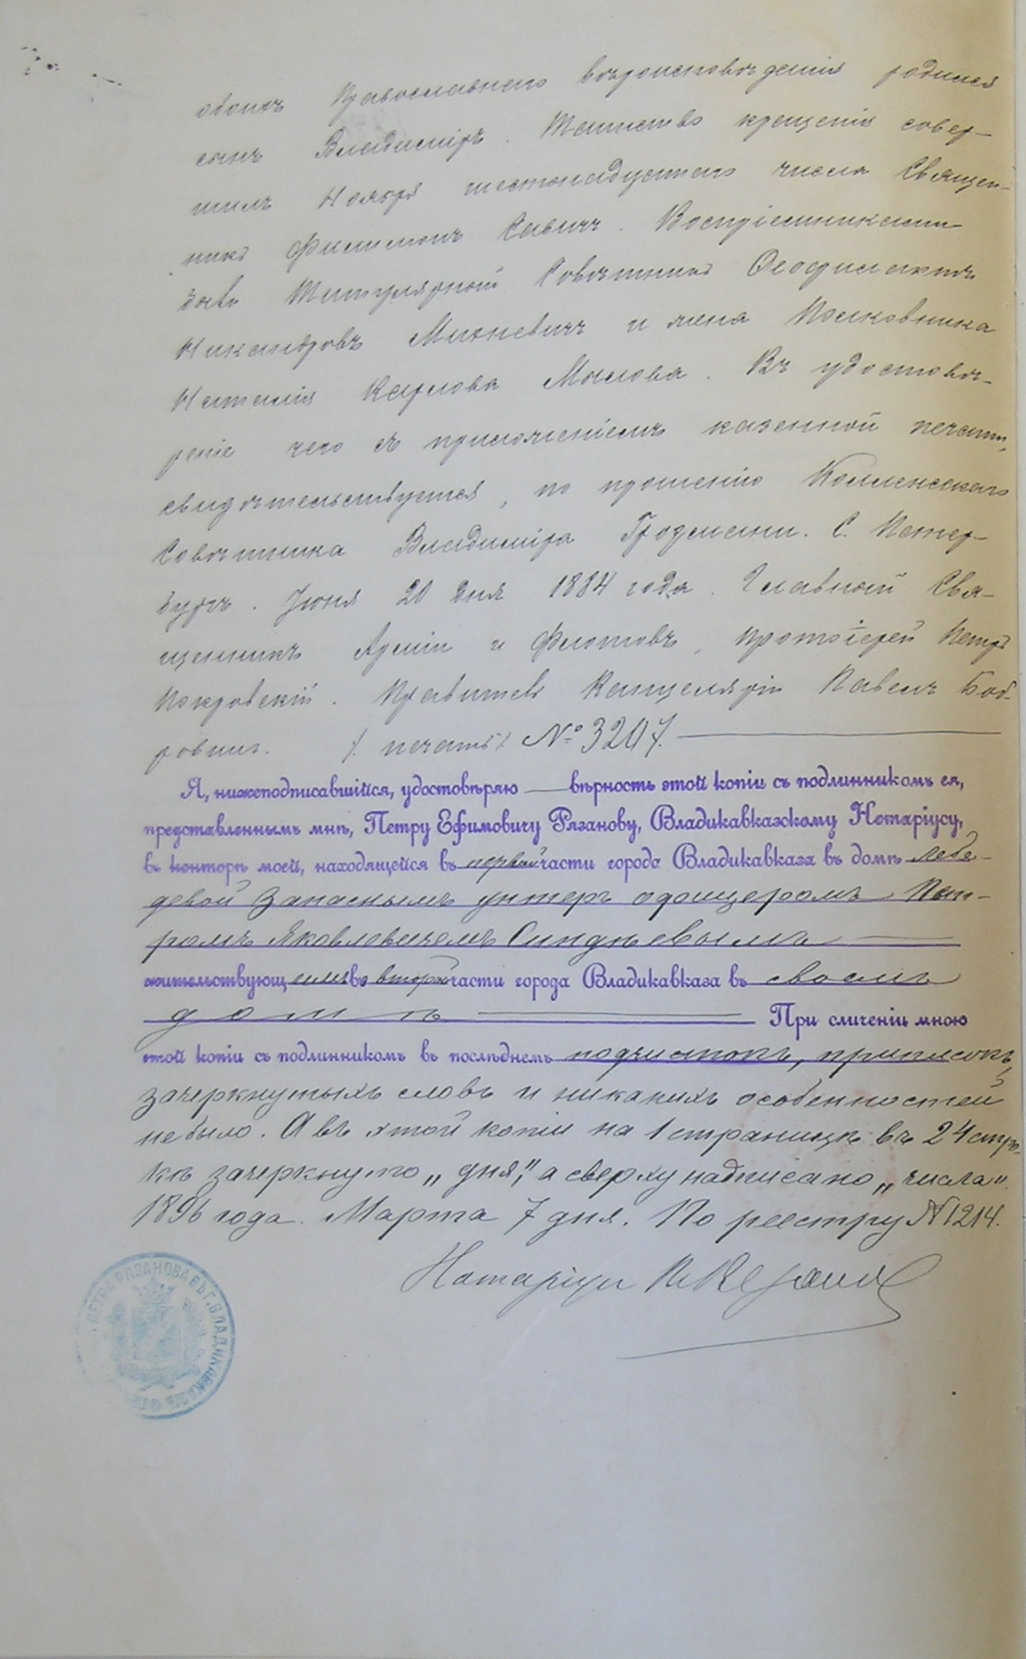 обоихъ Православнаго вѣроисповѣданія родился
сынъ Владиміръ. Таинство крещенія совер-
шилъ Ноября шестнадцатаго числа Священ-
никъ Филимонъ Савичъ. Воспріемниками
были Титулярный Совѣтникъ Ѳеофилактъ
Никандровъ Михневичъ и жена Полковника
Наталія Карлова Маслова. Въ удостовѣ-
реніе чего съ приложеніемъ казенной печати,
свидѣтельствуется, по прошенію Коллежскаго
Совѣтника Владиміра Гродзскаго. С. Петер-
бургъ. Іюня 20 дня 1884 года. Главный Свя-
щенникъ Арміи и Флотовъ, Протоіерей Петръ
Покровскій. Правитель Канцеляріи Павелъ Боб-
ровниц. /. печать / № 3207.
Я, нижеподписавшійся, удостовѣряю вѣрность этой копіи съ подлинникомъ ея,
представленнымъ мнѣ, Петру Ефимовичу Рязанову, Владикавказскому Нотаріусу,
въ конторѣ моей, находящейся въ первой части города Владикавказа въ домѣ Лебе-
девой Запаснымъ унтеръ офицеромъ Пет-
ромъ Яковлевичемъ Синднѣевымъ
жительствующимъ во второй части города Владикавказа въ своемъ
домѣ При сличеніи мною
этой копіи съ подлинникомъ въ послѣднемъ подчистокъ, приписокъ,
зачеркнутыхъ словъ и никакихъ особенностей
не было. А въ этой копіи на 1 страницѣ въ 24 стро-
кѣ зачеркнуто „дня", а сверху надписано „числа".
1896 года. Марта 7 дня. По реестру № 1214.
Нотаріусъ П. Рязановъ